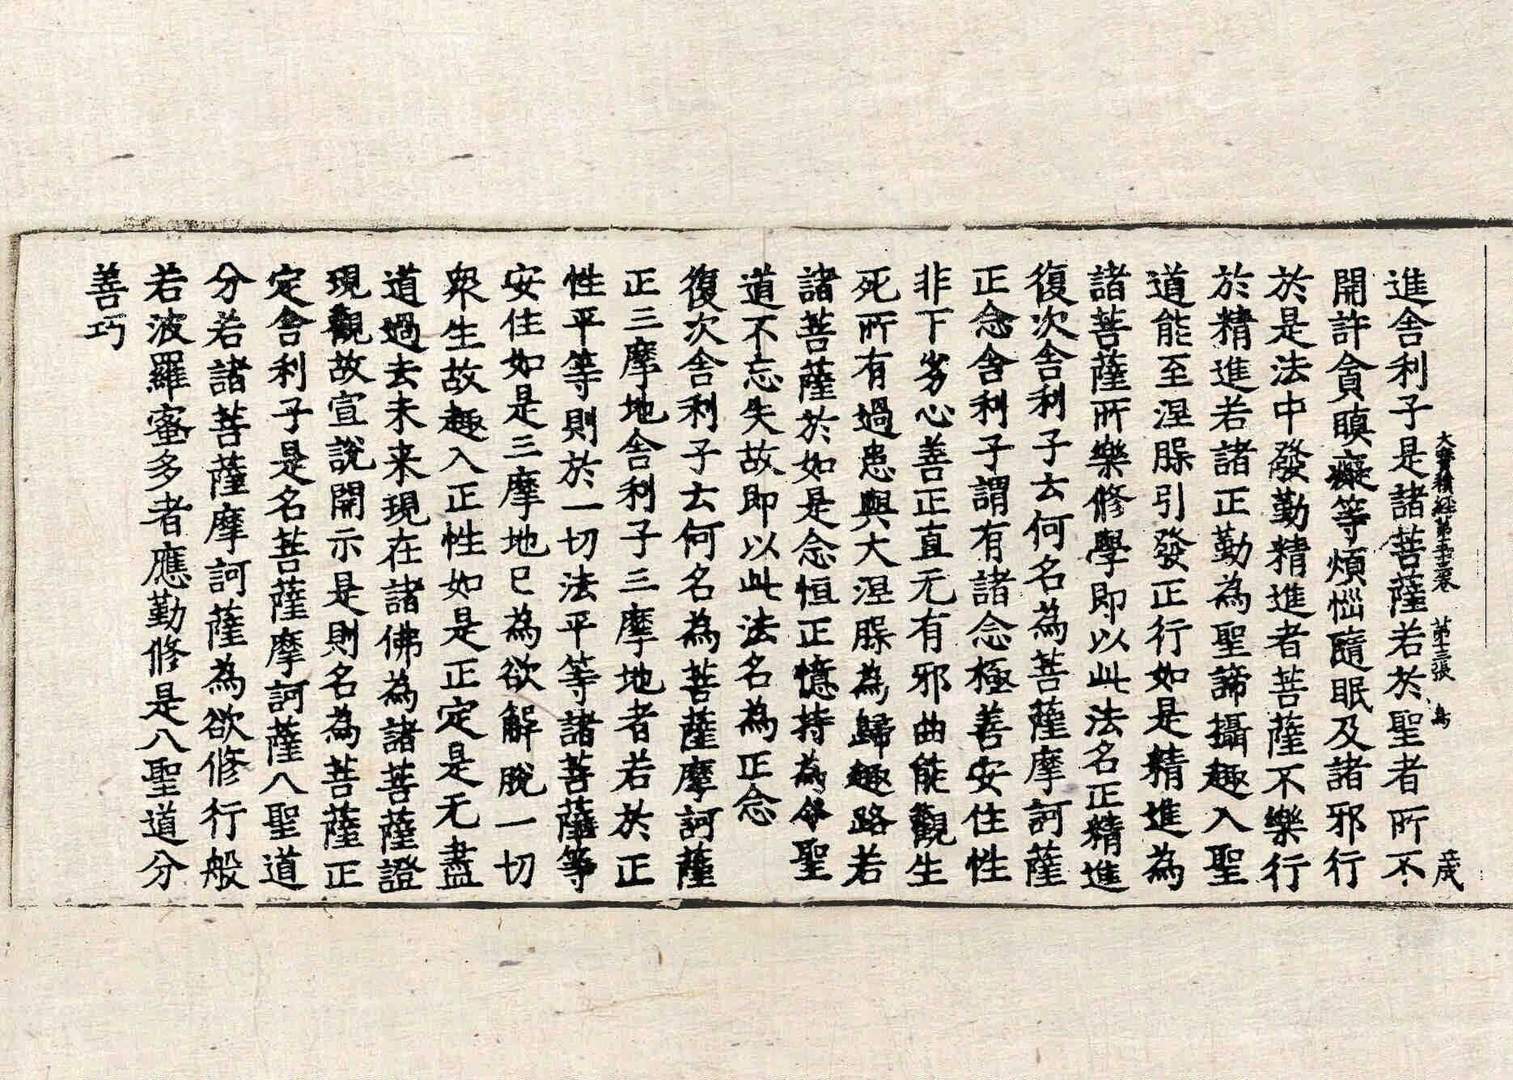 大寶積經第五十三卷 第十三張 鳥
進舍利子是諸菩薩若於聖者所不
開許貪瞋癡等煩惱隨眠及諸邪行
於是法中發勤精進者菩薩不樂行
於精進若諸正勤為聖諦攝趣入聖
道能至涅槃引發正行如是精進為
諸菩薩所樂修學即以此法名正精進
復次舍利子云何名為菩薩摩訶薩
正念舍利子謂有諸念極善安住性
非下劣心善正直无有邪曲能觀生
死所有過患與大涅槃為歸趣路若
諸菩薩於如是念恒正憶持為令聖
道不忘失故即以此法名為正念
復次舍利子云何名為菩薩摩訶薩
正三摩地舍利子三摩地者若於正
性平等則於一切法平等諸菩薩等
安住如是三摩地已為欲解脫一切
衆生故趣入正性如是正定是无盡
道過去未来現在諸佛為諸菩薩證
現觀故宣說開示是則名為菩薩正
定舍利子是名菩薩摩訶薩八聖道
分若諸菩薩摩訶薩為欲修行般
若波羅蜜多者應勤修是八聖道分
善巧